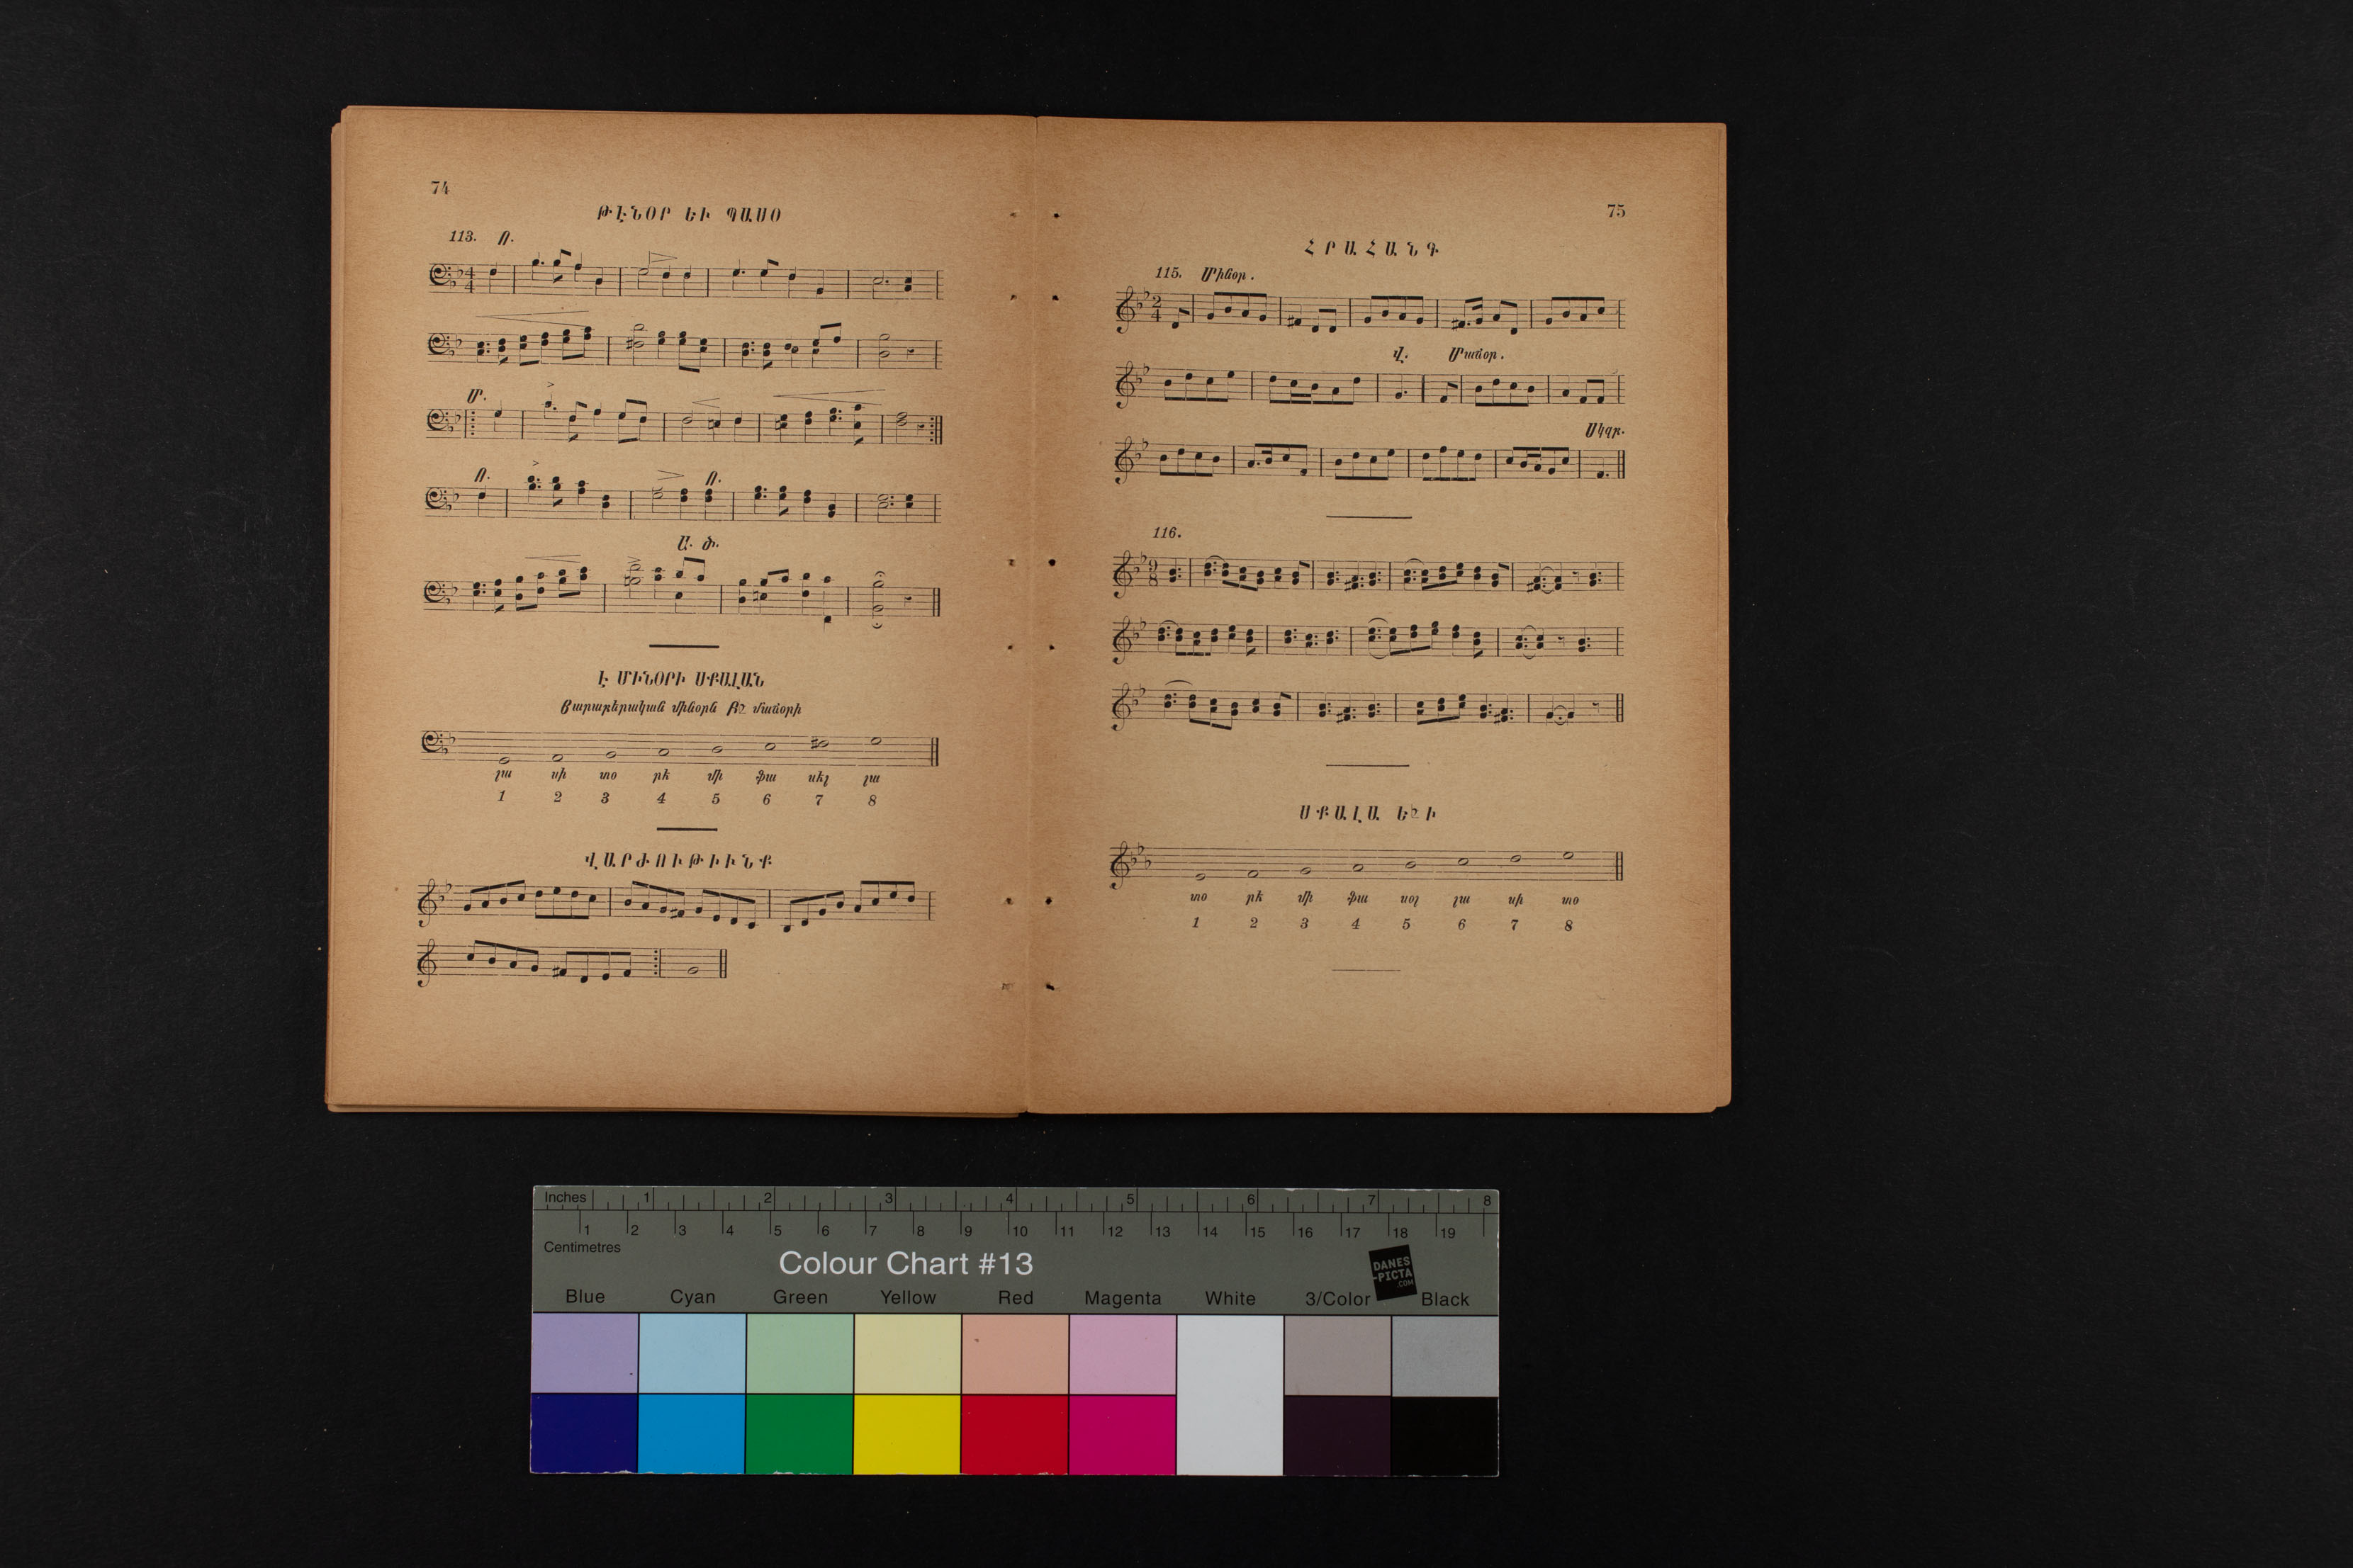 74
ԹԷՆՕՐ ԵՒ ՊԱՍՕ
113. Ո.
4
4
Մ.
Ո.
Ո.
Ա. Ֆ.
Է ՄԻՆՕՐԻ ՍՔԱԼԱՆ
Յարաբերական մինօրն Բ♭ մաժօրի
լա սի տօ րե մի ֆա սել լա
1 2 3 4 5 6 7 8
ՎԱՐԺՈՒԹԻՒՆՔ
75
ՀՐԱՀԱՆԳ
115. Մինօր.
2
4
Վ. Մաժօր.
Սկզբ.
116.
9
8
ՍՔԱԼԱ Ե♭Ի
տօ րե մի ֆա սօլ լա սի տօ
1 2 3 4 5 6 7 8
Inches 1 2 3 4 5 6 7 8
1 2 3 4 5 6 7 8 9 10 11 12 13 14 15 16 17 18 19
Centimetres
Colour Chart #13
DANES
-PICTA
.COM
Blue Cyan Green Yellow Red Magenta White 3/Color Black